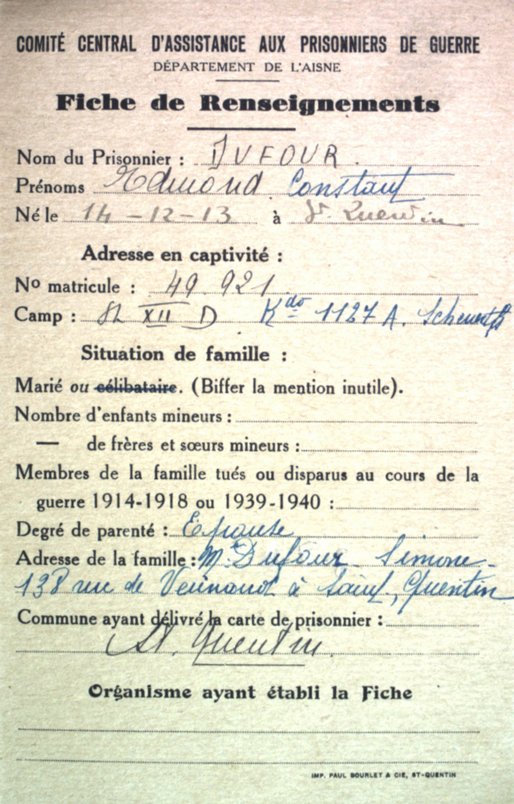 COMITÉ CENTRAL D'ASSISTANCE AUX PRISONNIERS DE GUERRE
DÉPARTEMENT DE L'AISNE
Fiche de Renseignements
Nom du Prisonnier : DUFOUR.
Prénoms Edmond Constant
Né le 14-12-13 à St. Quentin
Adresse en captivité :
No matricule : 49 921
Camp : XII D Kdo 1127 A.
Situation de famille :
Marié ou célibataire. (Biffer la mention inutile).
Nombre d'enfants mineurs :
— de frères et sœurs mineurs :
Membres de la famille tués ou disparus au cours de la
guerre 1914-1918 ou 1939-1940 :
Degré de parenté : Epouse
Adresse de la famille : Dufour Simone
138 rue de à Saint, Quentin
Commune ayant délivré la carte de prisonnier :
St. Quentin.
Organisme ayant établi la Fiche
IMP. PAUL BOURLET & CIE, ST-QUENTIN